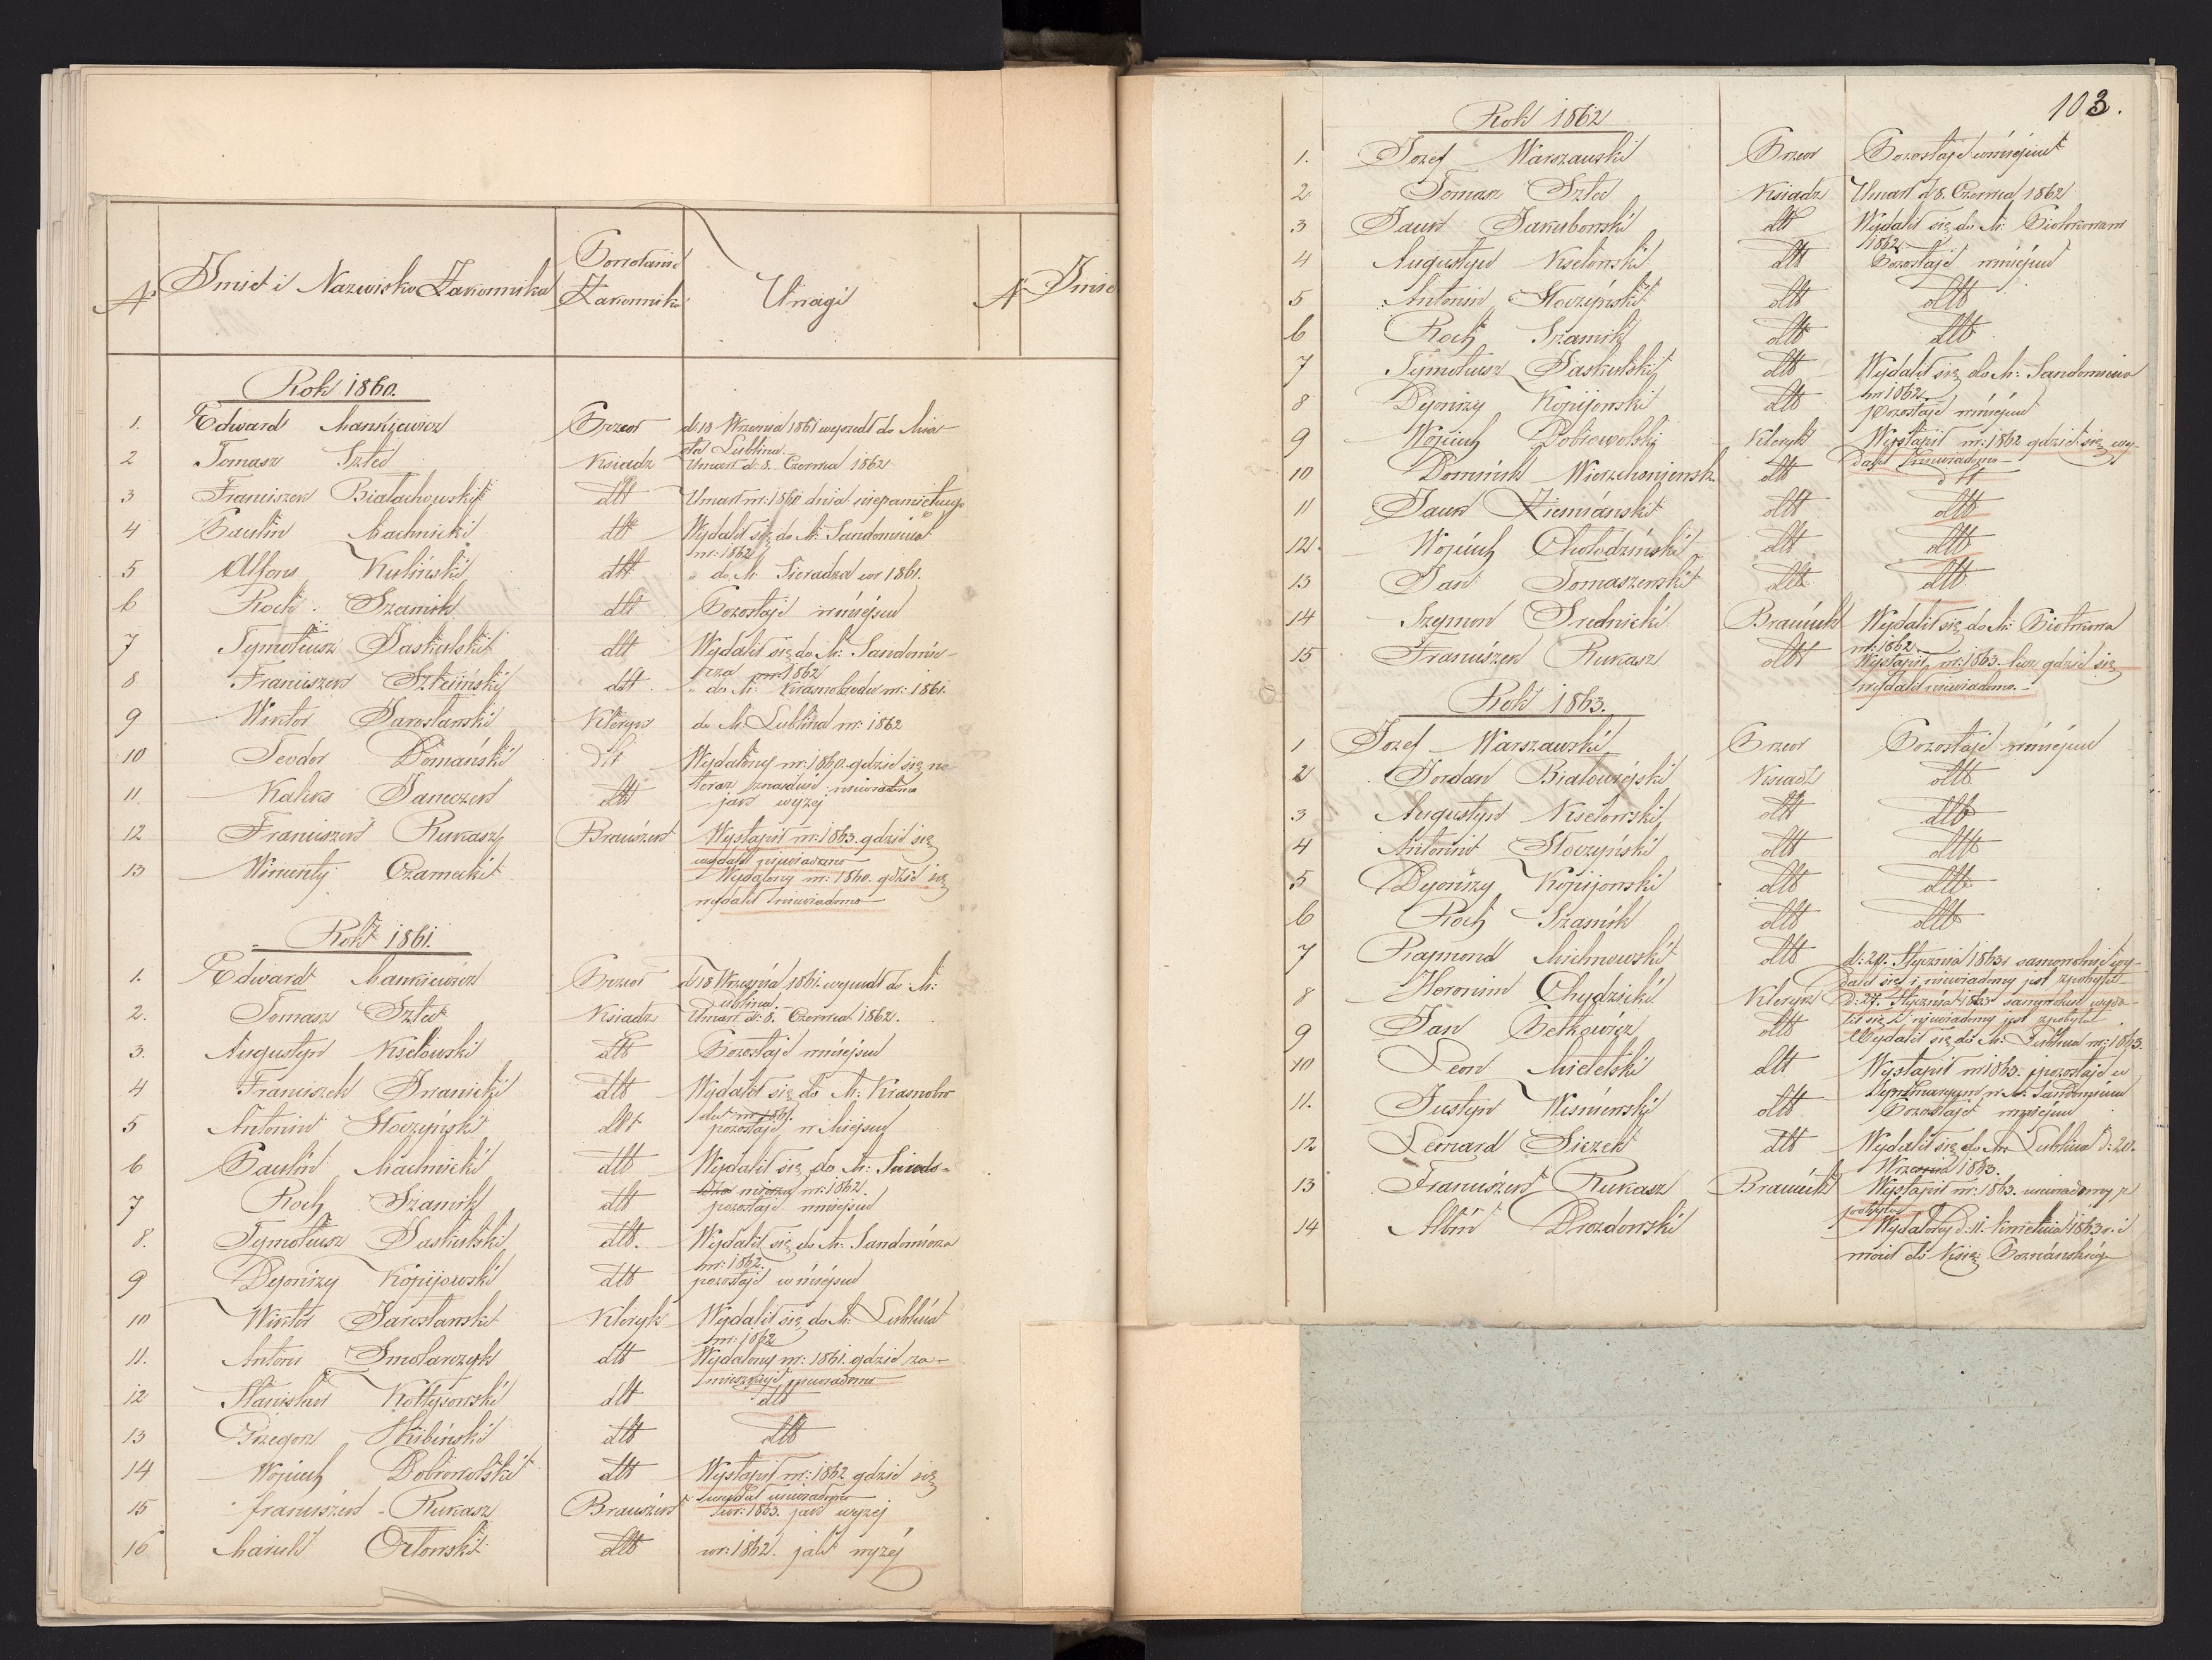 No Imie i Nazwisko Zakonnika Powołanie Zakonnika Uwagi No Imie
Rok 1860.
1. Edward Mankiewicz Przeor d: 18 Września 1861 wyszedł do Mia-
sta Lublina.-
2 Tomasz Szled Ksiadz Umarł d: 8. Czerwca 1862
3 Franciszek Białachowski dtt Umarł w r: 1860 dnia niepamiętnego
4 Paulin Machnicki dtt Wydalił się do M: Sandomierza
w r: 1862
5 Alfons Kuliński dtt " do M: Sieradza w r 1861.
6 Roch Szamik dtt Pozostaje w miejscu
7 Tymoteusz Daskulski dtt Wydalił się do M: Sandomie-
rza w r 1862
8 Franciszek Szteiński dtt " do M: Krasnobrodu w r: 1861.
9 Wiktor Jarosławski Kleryk do M. Lublina w r: 1862
10 Teodor Domański dtt Wydalony w r: 1860. gdzie się na
teraz znajduie niewiadomo
11 Kaliks Janeczek dtt jak wyżej
12 Franciszek Rukasz Braiszek Wystąpił w r: 1863. gdzie się
wydalił niewiadomo
13 Wincenty Czarnecki Wydalony w r: 1860. gdzie się
wydalił niewiadomo
Rok 1861.
1. Edward Mankiewicz Przeor d: 18 Września 1861. wyszedł do M:
Lublina.
2. Tomasz Szled Ksiadz Umarł d: 8. Czerwca 1862.
3. Augustyn Kselowski dtt Pozostaje w miejscu
4 Franciszek Iwanicki dtt Wydalił się do M: Krasnobro
du w r 1861.
5 Antonin Słoczyński dtt pozostaje w Miejscu
6 Paulin Machnicki dtt Wydalił się do M: Sando-
mierza w r: 1862.
7 Roch Szamik dtt pozostaje w miejscu
8. Tymoteusz Daskulski dtt. Wydalił się do M: Sandomierza
w r: 1862.
9 Dyonizy Kopijowski dtt pozostaje w miejscu
10 Wiktor Jarosławski Kleryk Wydalił się do M: Lublina
w r: 1862
11. Antoni Smolarczyk dtt Wydalony w r: 1861. gdzie za-
mieszkuje niewiadomo
12 Stanisław Kottysowski dtt dtt
13 Grzegorz Skibiński dtt dtt
14 Wojciech Dobrowolski dtt Wystąpił w r: 1862 gdzie się
wydał niewiadomo
15 franciszek Rukasz Braiszek w r: 1863. jak wyżej
16 Marcin Orłowski dtt w r: 1862. jak wyżej
103.
Rok 1862
1. Jozef Warszawski Przeor Pozostaje w miejscu
2 Tomasz Szled Ksiadz Umarł d 8. Czerwca 1862
3 Jacek Jakubowski dtt Wydalił się do M: Piotrkowa w
1862.
4 Augustyn Kselowski dtt Pozostaje w miejscu
5 Antonin Słoczyński dtt dtt
6 Roch Szamik dtt dtt
7 Tymoteusz Daskulski dtt Wydalił się do M: Sandomierza
w r 1862.
8 Dyonizy Kopijowski dtt pozostaje w miejscu
9 Wojciech Dobrowolski Kleryk Wystąpił w r: 1862 gdzie się wy-
dalił niewiadomo
10 Dominik dtt dtt
11 Jacek Ziemiański dtt dtt
12. Wojciech Chołodziński dtt dtt
13 Jan Tomaszewski dtt dtt
14 Szymon Srednicki Braiciszk Wydalił się do M: Piotrkowa
w r: 1862
15 Franciszek Rukasz dtt Wystąpił w r: 1863. lecz gdzie się
wydalił niewiadomo.-
Rok 1863.
1 Jozef Warszawski Przeor Pozostaje w miejscu
2 Jordan Białowiejski Ksiadz dtt
3 Augustyn Kselowski dtt dtt
4 Antonin Słoczyński dtt dtt
5 Dyonizy Kopijowski dtt dtt
6 Roch Szamik dtt dtt
7 Rajmond Michnowski dtt d: 20. Stycznia 1863r samowolnie wy-
dalił się i niewiadomy jest z pobytu
8 Heronim Chydzicki Kleryk D: 27. Stycznia 1863 samowolnie wyda-
lił się i niewiadomy jest z pobytu
9 Jan Petkowicz dtt Wydalił się do M: Lublina w r: 1863.
10 Leon Mieletski dtt Wystąpił w r 1863. i pozostaje w
Seminaryum w M: Sandomierzu
11. Justyn Wiśniewski dtt Pozostaje w miejscu
12 Leonard Siczek dtt Wydalił się do M: Lublina d: 20.
Września 1863.
13 Franciszek Rukasz Braiciszk Wystąpił w r: 1863. niewiadomy z
pobytu
14 Albin Drozdowski Wydalony d: 11. Kwietnia 1863 r. i
mówił do Księ: Poznańskieg